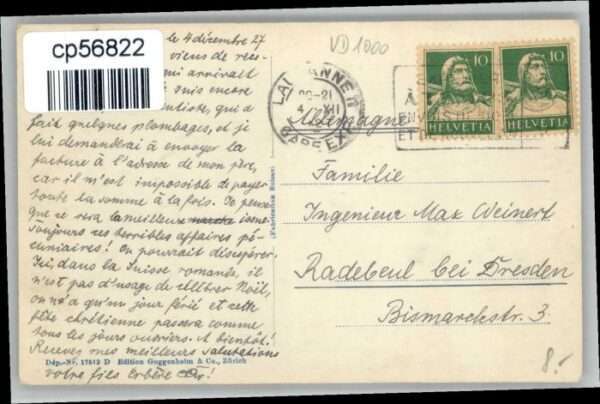 cp56822
VD 1000
le 4 décembre 27
viens de rece-
mi arrivait
suis encore
dentiste, qui a
fait quelques plombages, et je
lui demanderai à envoyer la
facture à l'adresse de mon père,
car il m'est impossible de payer
toute la somme à la fois. Je pense
que ce sera la meilleure
toujours ces terribles affaires pé-
cuniaires! On pourrait désespérer.
Ici, dans la Suisse romande, il
n'est pas d'usage de célébrer Noël,
on n'a qu'un jour férié et cette
fête chrétienne passera comme
tous les jours ouvriers. A bientôt!
Recevez mes meilleurs salutations
votre fils
Dép.-Nr. 17612 D Edition Guggenheim & Co., Zürich
(Fabrication Suisse)
4. XII
GARE EXP
10
HELVETIA
10
HELVETIA
À
ET
Allemagne
Familie
Ingenieur Max Weinert
Radebeul bei Dresden
Bismarckstr. 3.
8.-